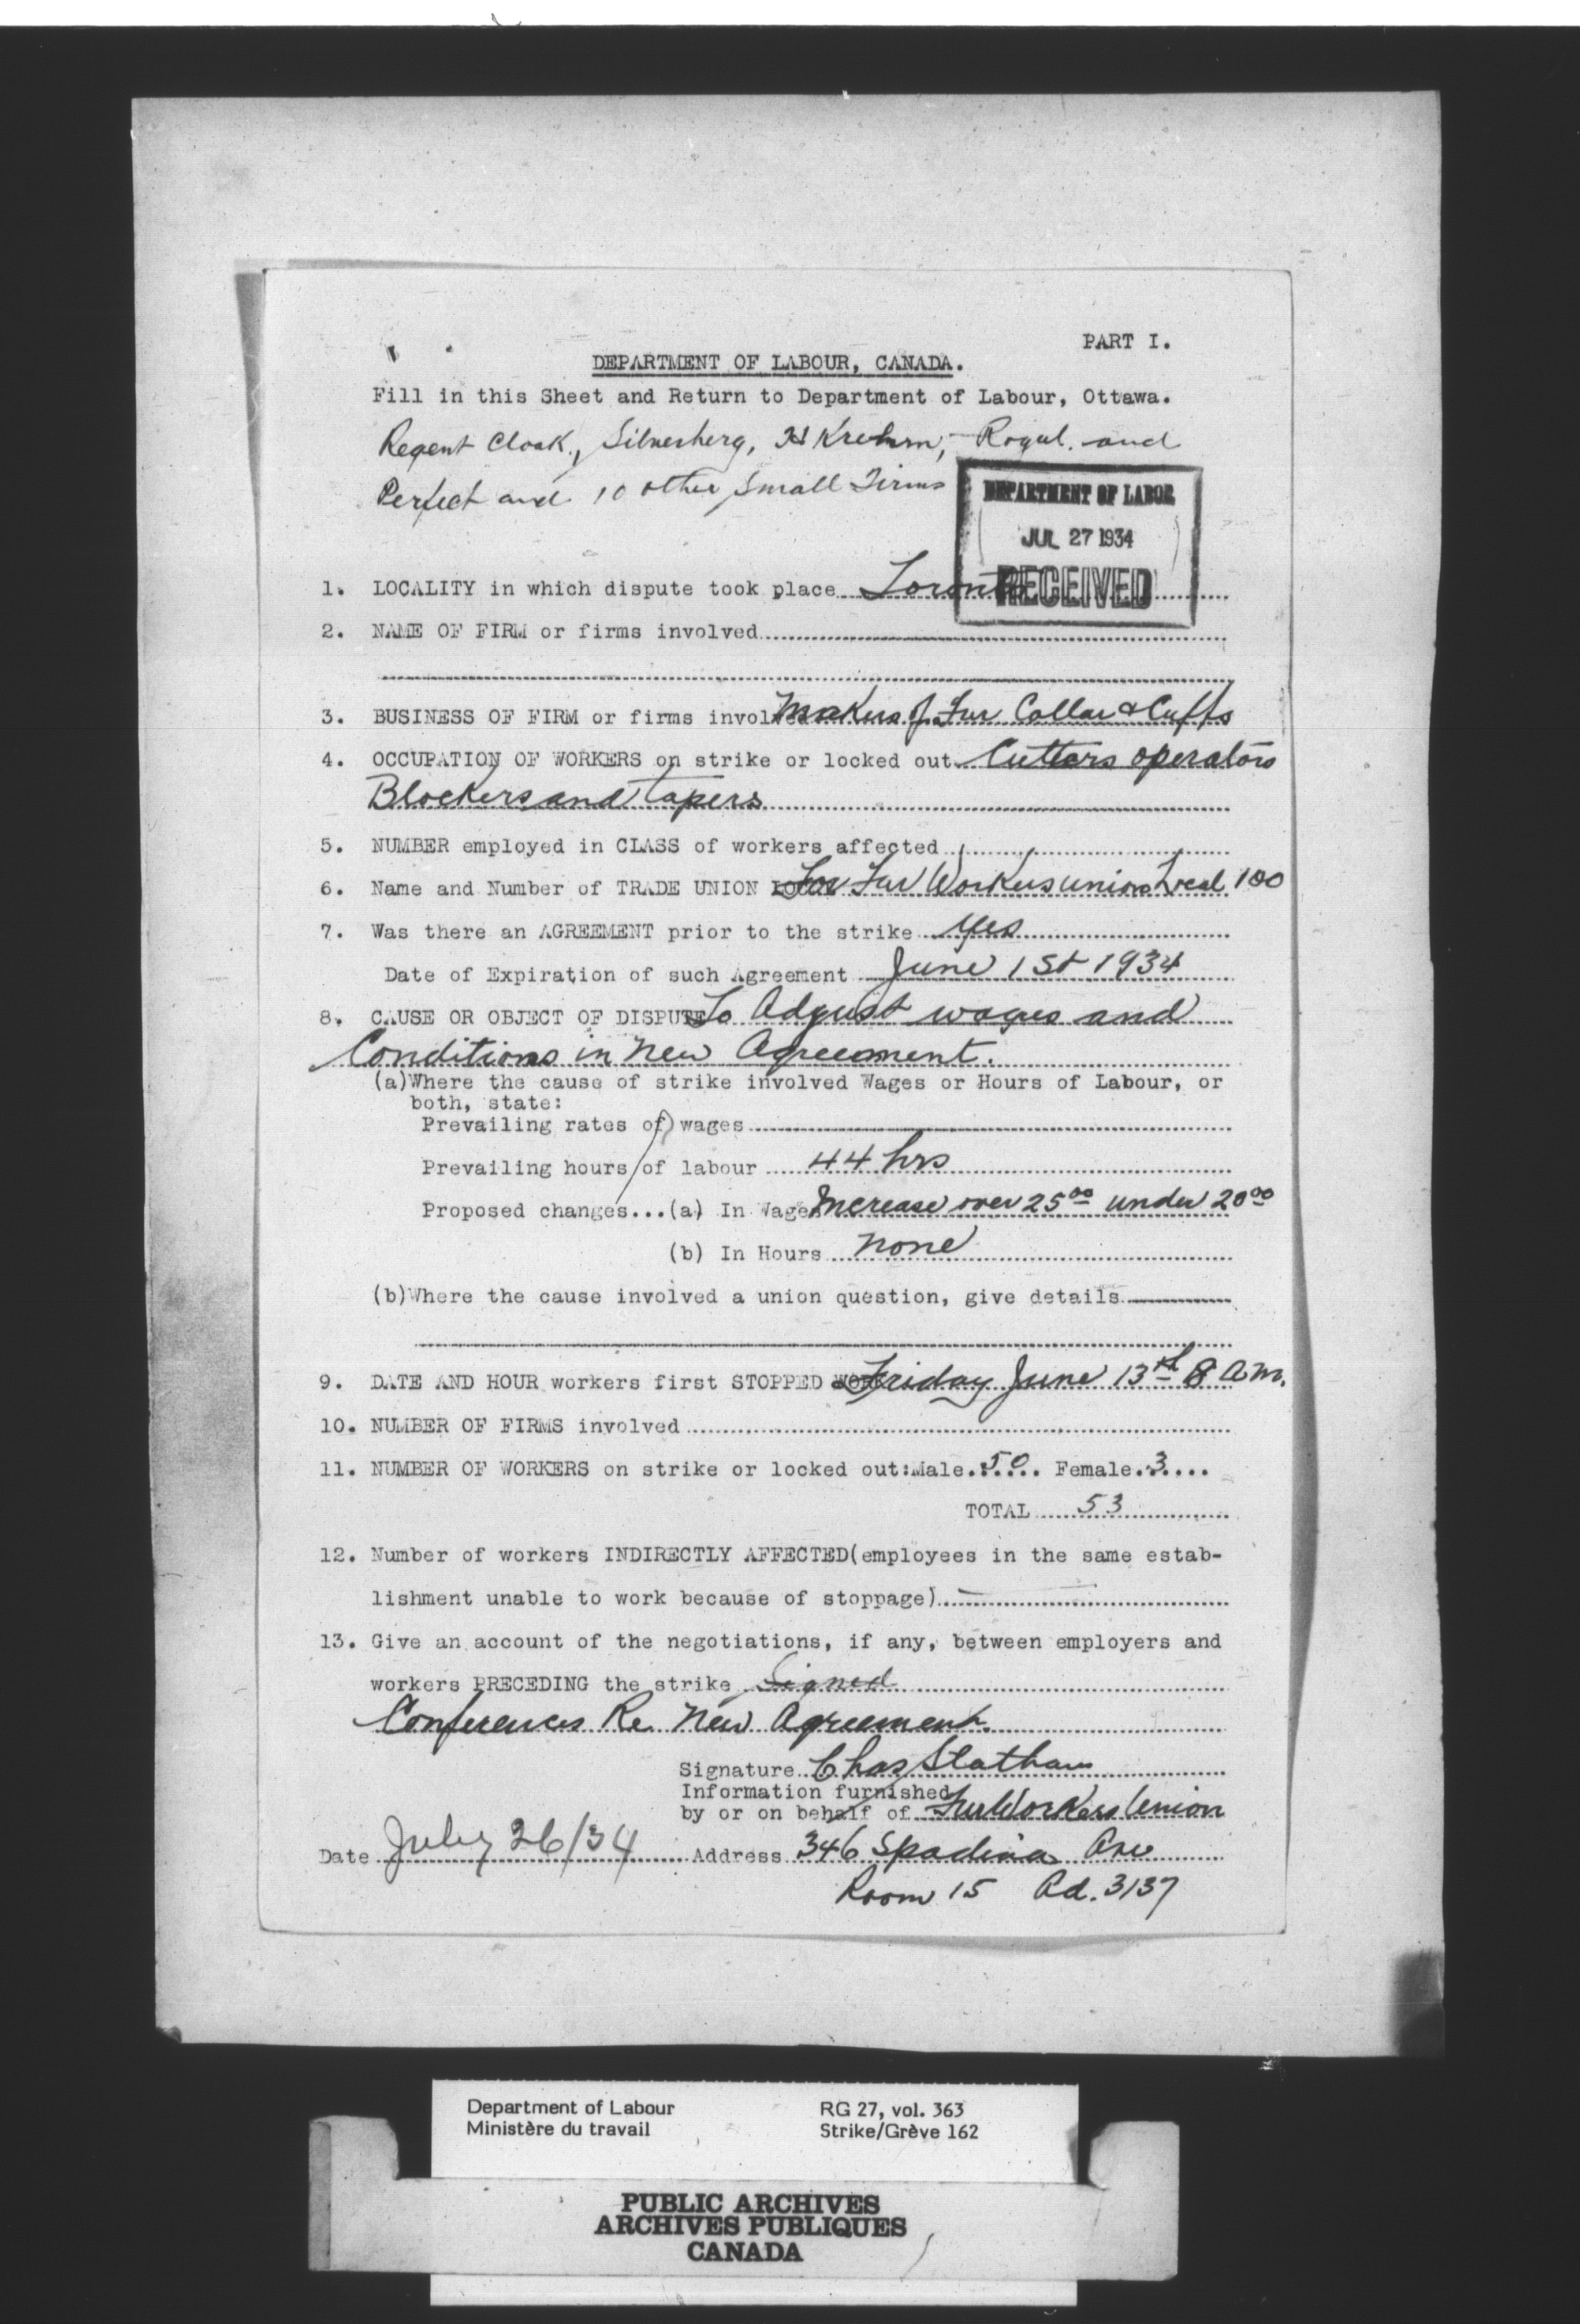 PART I.
DEPARTMENT OF LABOUR, CANADA.
Fill in this Sheet and Return to Department of Labour, Ottawa.
Regent Cloak, Silverberg, H Krehm, Royal. and
Perfect and 10 other small Firms
DEPARTMENT OF LABOR
JUL 27 1934
RECEIVED
1. LOCALITY in which dispute took place Toronto
2. NAME OF FIRM or firms involved
3. BUSINESS OF FIRM or firms involved Makers of Fur Collar & Cuffs
4. OCCUPATION OF WORKERS on strike or locked out Cutters operators
Blockers and Tapers
5. NUMBER employed in CLASS of workers affected
6. Name and Number of TRADE UNION For Fur Workers union Local 100
7. Was there an AGREEMENT prior to the strike yes
Date of Expiration of such Agreement June 1st 1934
8. CAUSE OR OBJECT OF DISPUTE To Adjust wages and
Conditions in new Agreement.
(a)Where the cause of strike involved Wages or Hours of Labour, or
both, state:
Prevailing rates of wages
Prevailing hours of labour 44 hrs
Proposed changes...(a) In Wages Increase over 25 00 under 20 00
(b) In Hours none
(b)Where the cause involved a union question, give details
9. DATE AND HOUR workers first STOPPED WORK Friday June 13th 8 a.m.
10. NUMBER OF FIRMS involved
11. NUMBER OF WORKERS on strike or locked out:Male 50 Female 3
TOTAL 53
12. Number of workers INDIRECTLY AFFECTED(employees in the same estab-
lishment unable to work because of stoppage)
13. Give an account of the negotiations, if any, between employers and
workers PRECEDING the strike Signed
Conferences Re New Agreement.
Signature Chas Statham
Information furnished
by or on behalf of Fur Workers Union
Date July 26/34 Address 346 Spadina Ave
Room 15 Ad. 3137
Department of Labour RG 27, vol. 363
Ministère du travail Strike/Grève 162
PUBLIC ARCHIVES
ARCHIVES PUBLIQUES
CANADA